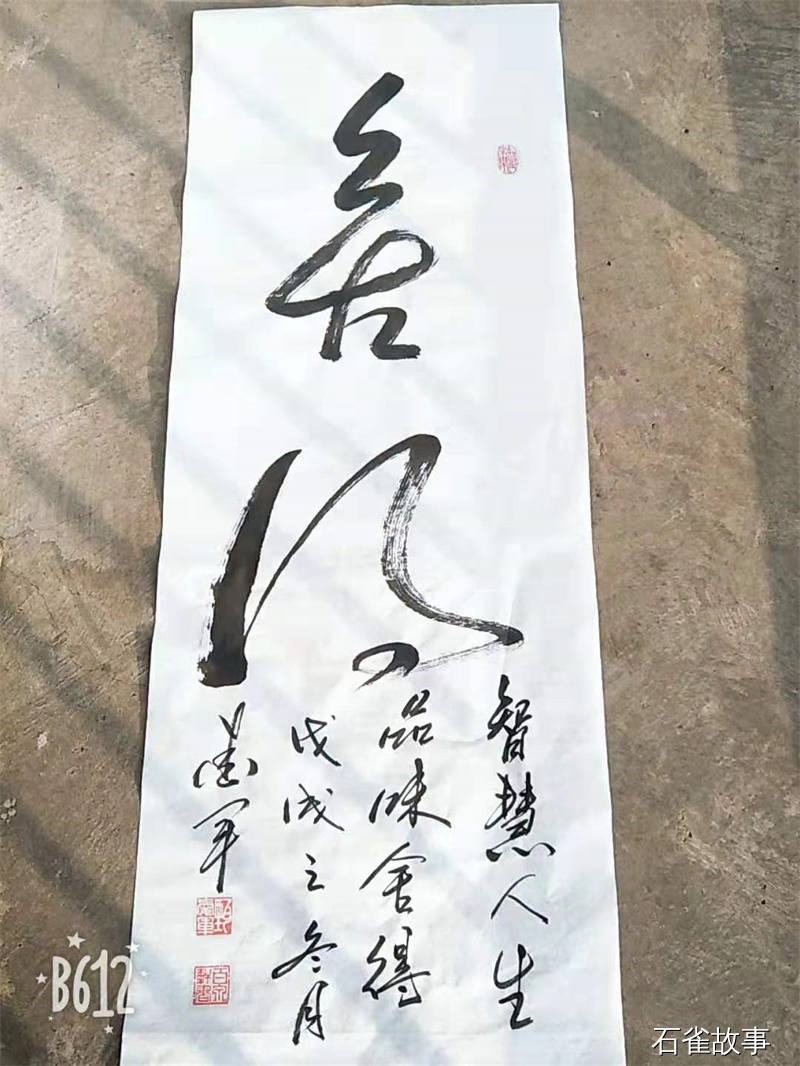 舍得
智慧人生
品味舍得
戊戌之冬月
B612
石雀故事